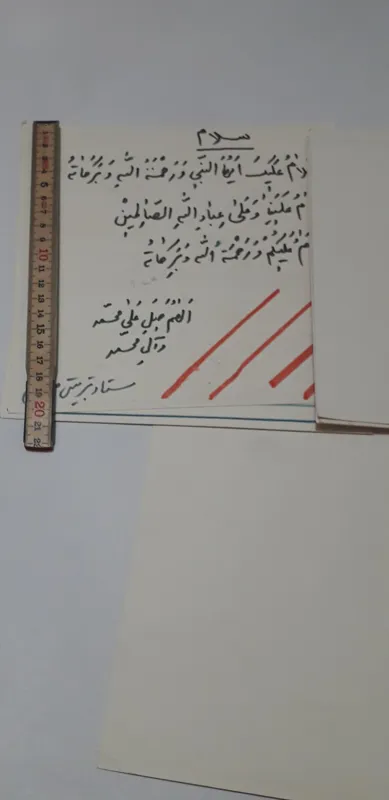 سلام
عَلَیکَ اَیُّهَا النَّبِیُّ وَ رَحْمَةُ اللّهِ وَ بَرَکاتُهُ
عَلَیْنا وَ عَلیٰ عِبادِ اللّهِ الصّالِحِیْنْ
عَلَیْکُمْ وَ رَحْمَةُ اللّه وَ بَرَکاتُهُ
اَللّهُمَّ صَلِّ عَلیٰ مُحَمَّد
وَ آلِ مُحَمَّد
ستاد تربیتی
1 2 3 4 5 6 7 8 9 10 11 12 13 14 15 16 17 18 19 20 21 22